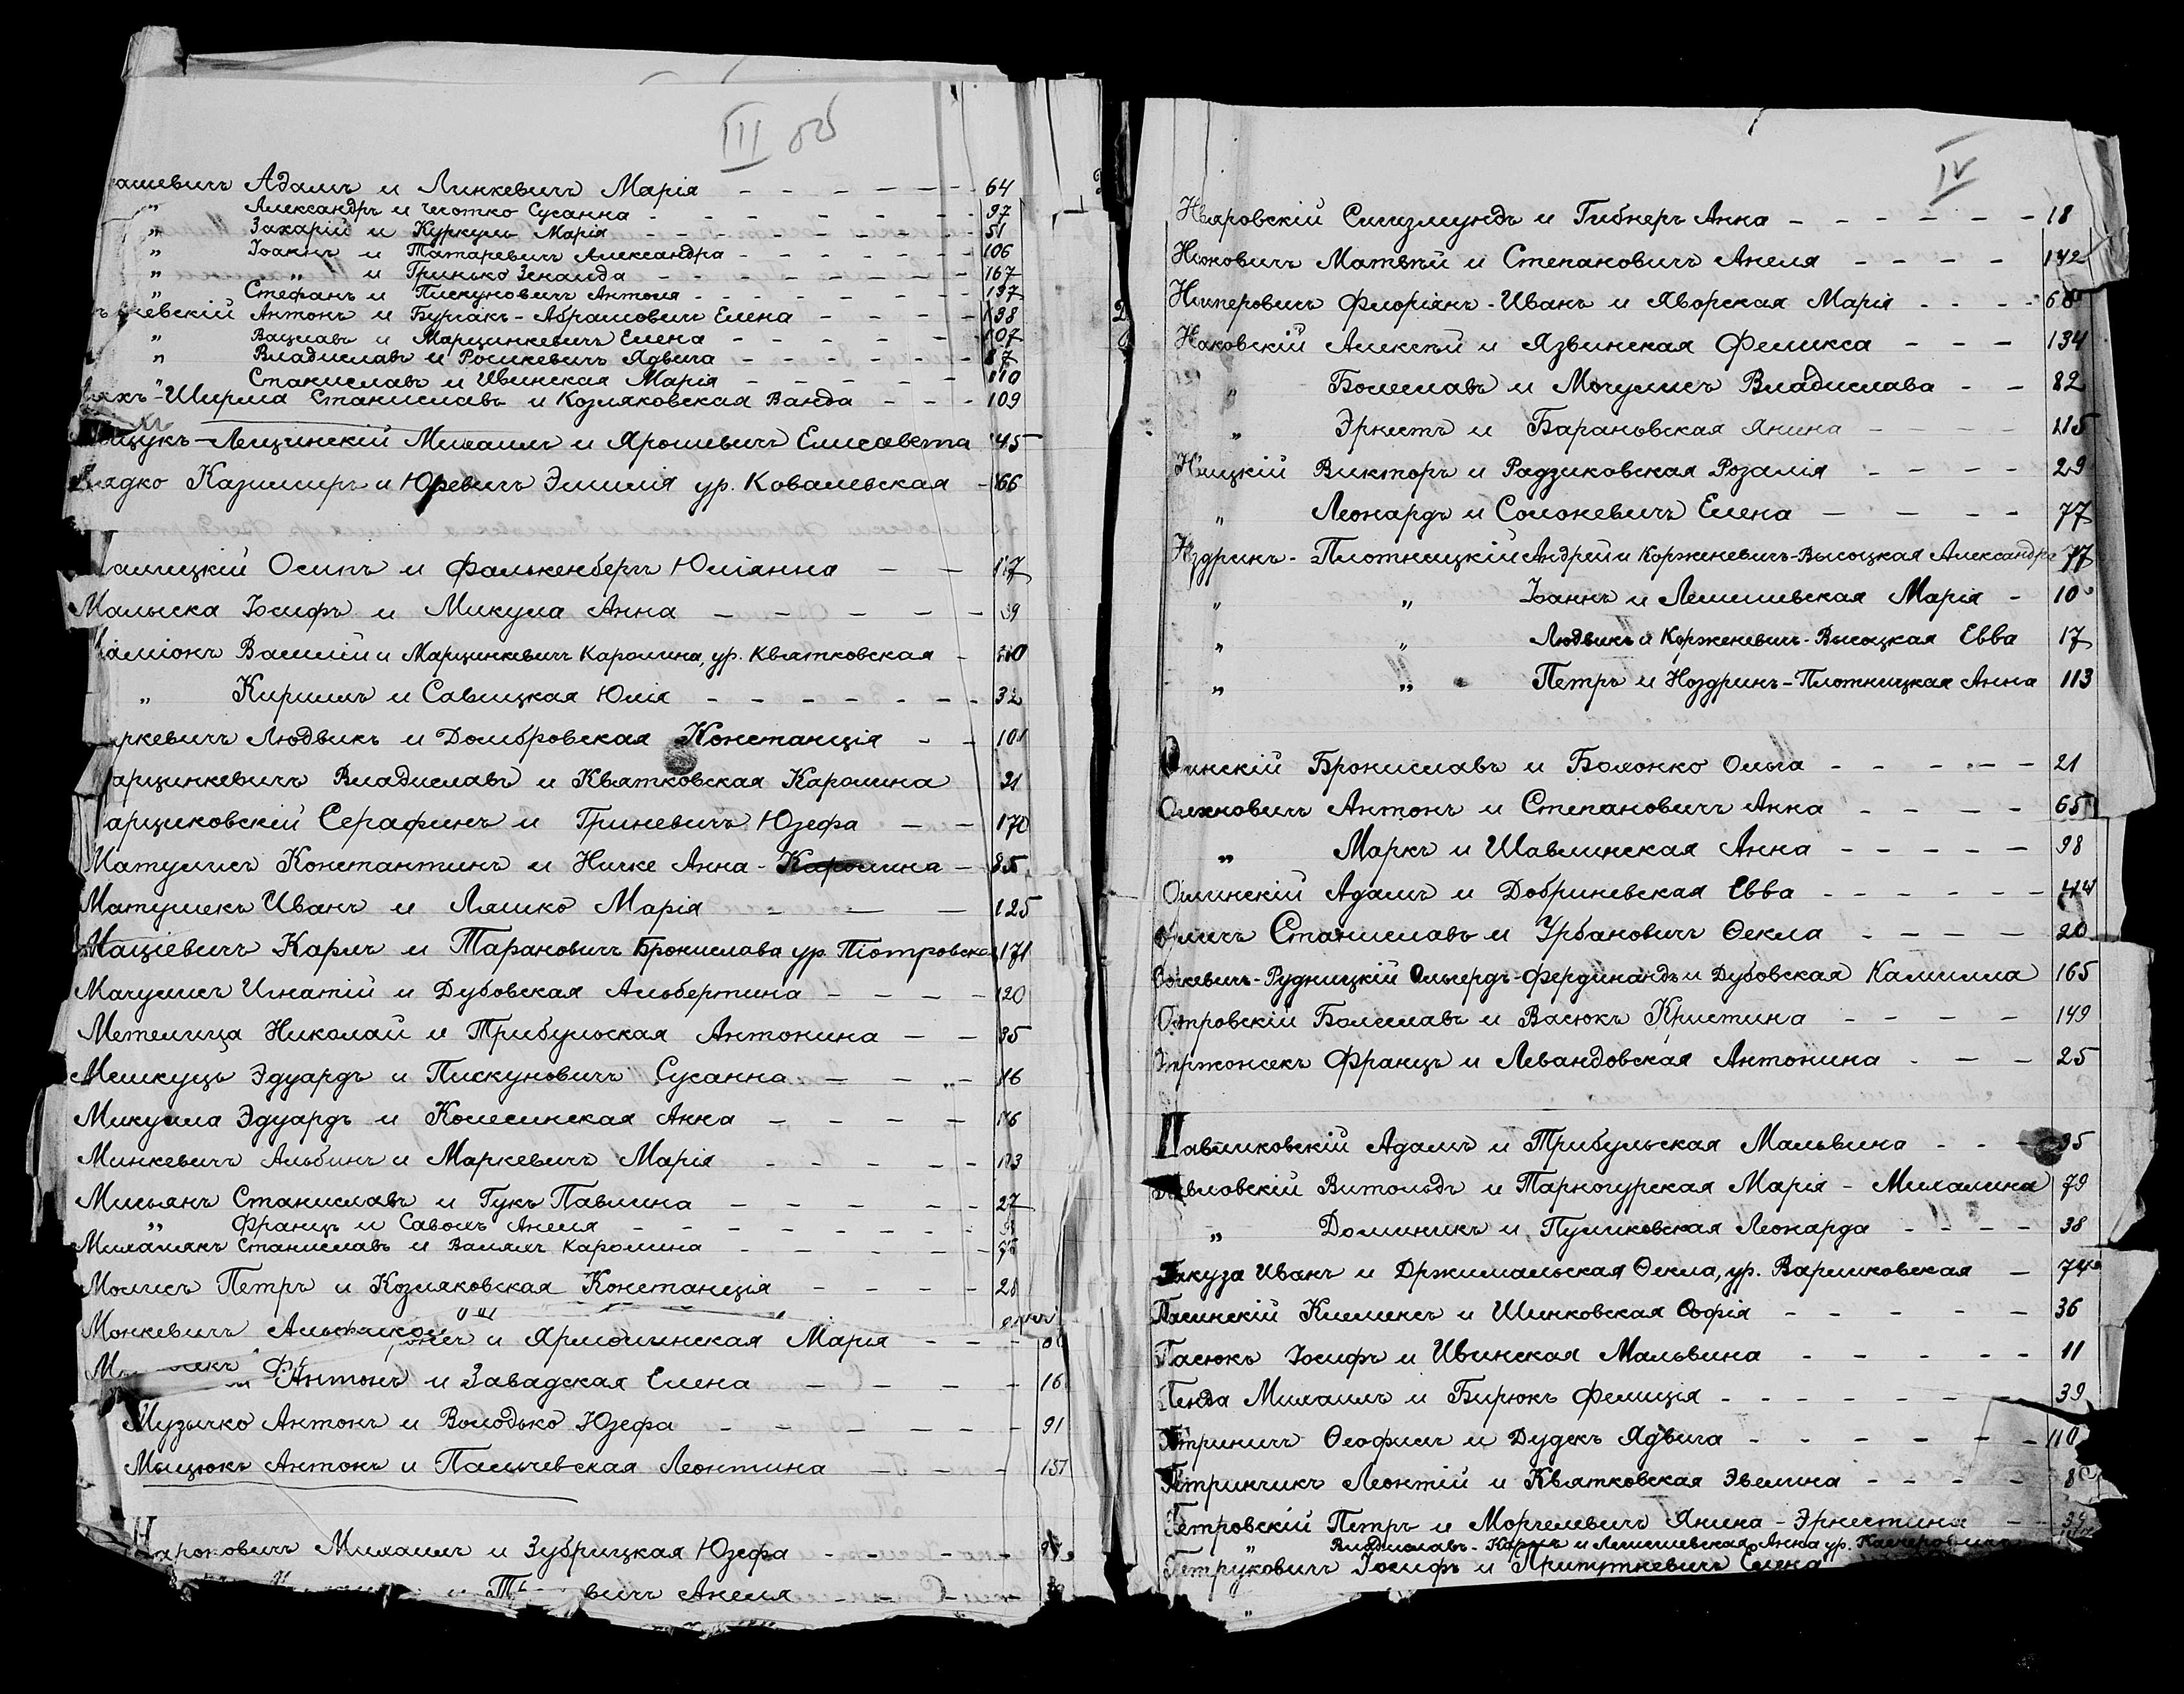 III об
ашевичъ Адамъ и Линкевичъ Марія - - - - - - - 64
„ Александръ и Чеотко Сусанна - - - - - - - 97
„ Захарій и Куркуль Марія - - - - - - - 51
„ Іоакимъ и Татаревичъ Александра - - - - - - 106
„ „ и Гринько Зенаида - - - - - - - 167
„ Стефанъ и Пискуновичъ Антоля - - - - - - - 137
евскій Антонъ и Бурчакъ-Абрамовичъ Елена - - - - 138
„ Вацлавъ и Марцинкевичъ Елена - - - - - - 107
„ Владиславъ и Рошкевичъ Ядвига - - - - - - 87
„ Станиславъ и Ивинская Марія - - - - - - 110
Ляхъ-Ширма Станиславъ и Козляковская Ванда - - - 109
Лящукъ-Лещинскій Михаилъ и Ярошевичъ Елисавета 145
Лядко Казимиръ и Юревичъ Эмилія ур. Ковалевская - 166
Малицкій Осипъ и Фалькенбергъ Юліанна - - 117
Малыска Іосифъ и Микула Анна - - - - - 39
Маліонъ Василій и Марцинкевичъ Каролина, ур. Квятковская -
„ Кириллъ и Савицкая Юлія - - - - - - - 32
аркевичъ Людвикъ и Домбровская Констанція - - 101
арцинкевичъ Владиславъ и Квятковская Каролина 21
арциковскій Серафинъ и Гриневичъ Юзефа - - 170
Матулисъ Константинъ и Ничке Анна - Каролина - 85
Матушекъ Иванъ и Ляшко Марія - - - 125
Маціевичъ Карлъ и Тарановичъ Бронислава ур. Піотровска 171
Мачулисъ Игнатій и Дубовская Альбертина - - - - 120
Метелица Николай и Трибульская Антонина - - 35
Мешкуць Эдуардъ и Пискуновичъ Сусанна - - - 16
Микулла Эдуардъ и Колесинская Анна - - - - 116
Минкевичъ Альбинъ и Маркевичъ Марія - - - - - 113
Мильянъ Станиславъ и Гукъ Павлина - - - - - 27
„ Францъ и Савошъ Анеля - - - - - - -
Михалякъ Станиславъ и Валяхъ Каролина - - - - -
Молисъ Петръ и Козляковская Констанція - - - - 28
Монкевичъ и Ярмолинская Марія - - -
Антонъ и Завадская Елена - - - - - 16
Музычко Антонъ и Володько Юзефа - - - - - - 91
Мыцюкъ Антонъ и Пальчевская Леонтина - - - 151
Нароновичъ Михаилъ и Зубрицкая Юзефа - - - - -
и вичъ Анеля - - - -
IV
Нваровскій Сигизмундъ и Гибнеръ Анна - - - - - - 18
Новичъ Матвѣй и Степановичъ Анеля - - - - 142
Ниперовичъ Флоріянъ-Иванъ и Яворская Марія - - - - 68
Новаковскій Алексѣй и Язвинская Феликса - - - 134
„ Болеславъ и Мочулисъ Владислава - - 82
„ Эрнестъ и Барановская Янина - - - - 115
Новицкій Викторъ и Радзиковская Розалія - - - - 29
„ Леонардъ и Солоневичъ Елена - - - - 77
Ноздринъ-Плотницкій Андрей и Корженевичъ-Высоцкая Александра 77
„ „ Іоаннъ и Лешилевская Марія - 10
„ „ Людвикъ и Корженевичъ-Высоцкая Евва 17
„ „ Петръ и Ноздринъ-Плотницкая Анна 113
Огинскій Брониславъ и Болонко Ольга - - - - - - 21
Олехновичъ Антонъ и Степановичъ Анна - - - - 65
„ Маркъ и Шавлинская Анна - - - - - 98
Олинскій Адамъ и Добриневская Евва - - - - - - 44
Станиславъ и Урбановичъ Ѳекла - - - - 20
Рудницкій Ольгердъ-Фердинандъ и Дубовская Камилла 165
Островскій Болеславъ и Васюкъ Кристина - - - - 149
Отржонсекъ Францъ и Левандовская Антонина - - - 25
Павликовскій Адамъ и Трибульская Мальвина - - - 35
Павловскій Витольдъ и Тарногурская Марія - Михалина 79
„ Доминикъ и Пуликовская Леонарда - - - - 38
Пакуза Иванъ и Држимальская Ѳекла, ур. Варликовская - 74
Пасинскій Клеменсъ и Шинковская Софія - - - - - 36
Пасюкъ Іосифъ и Ивинская Мальвина - - - - - 11
Пенда Михаилъ и Бирюкъ Фелиція - - - - - - - 39
Петриничъ Ѳеофилъ и Дудекъ Ядвига - - - - - - 110
Петринчикъ Леонтій и Квятковская Эвелина - - - - 8
Петровскій Петръ и Моргелевичъ Янина-Эрнестина - -
„ Владиславъ-Карлъ и Лешилевская Анна ур.
Петруковичъ Іосифъ и Припутневичъ Елена
„